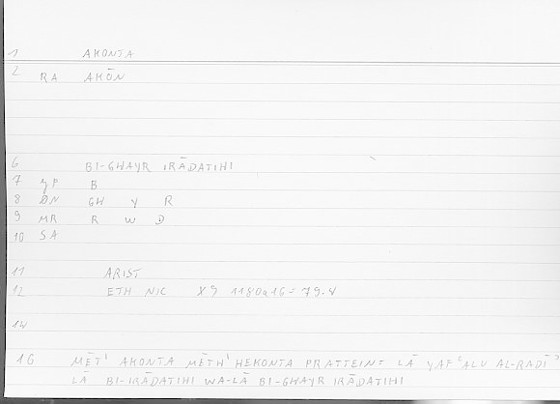 1 AKONTA
2 RA AKŌN
6 BI-GHAYR IRĀDATIHI
7 GP B
8 DN GH Y R
9 MR R W D
10 SA
11 ARIST
12 ETH NIC X9 1180a16 = 79.4
14
16 MĒT' AKONTA MĒTH' HEKONTA PRATTEINT LĀ YAFʿALU AL-RADĪʾ
LĀ BI-IRĀDATIHI WA-LĀ BI-GHAYR IRĀDATIHI